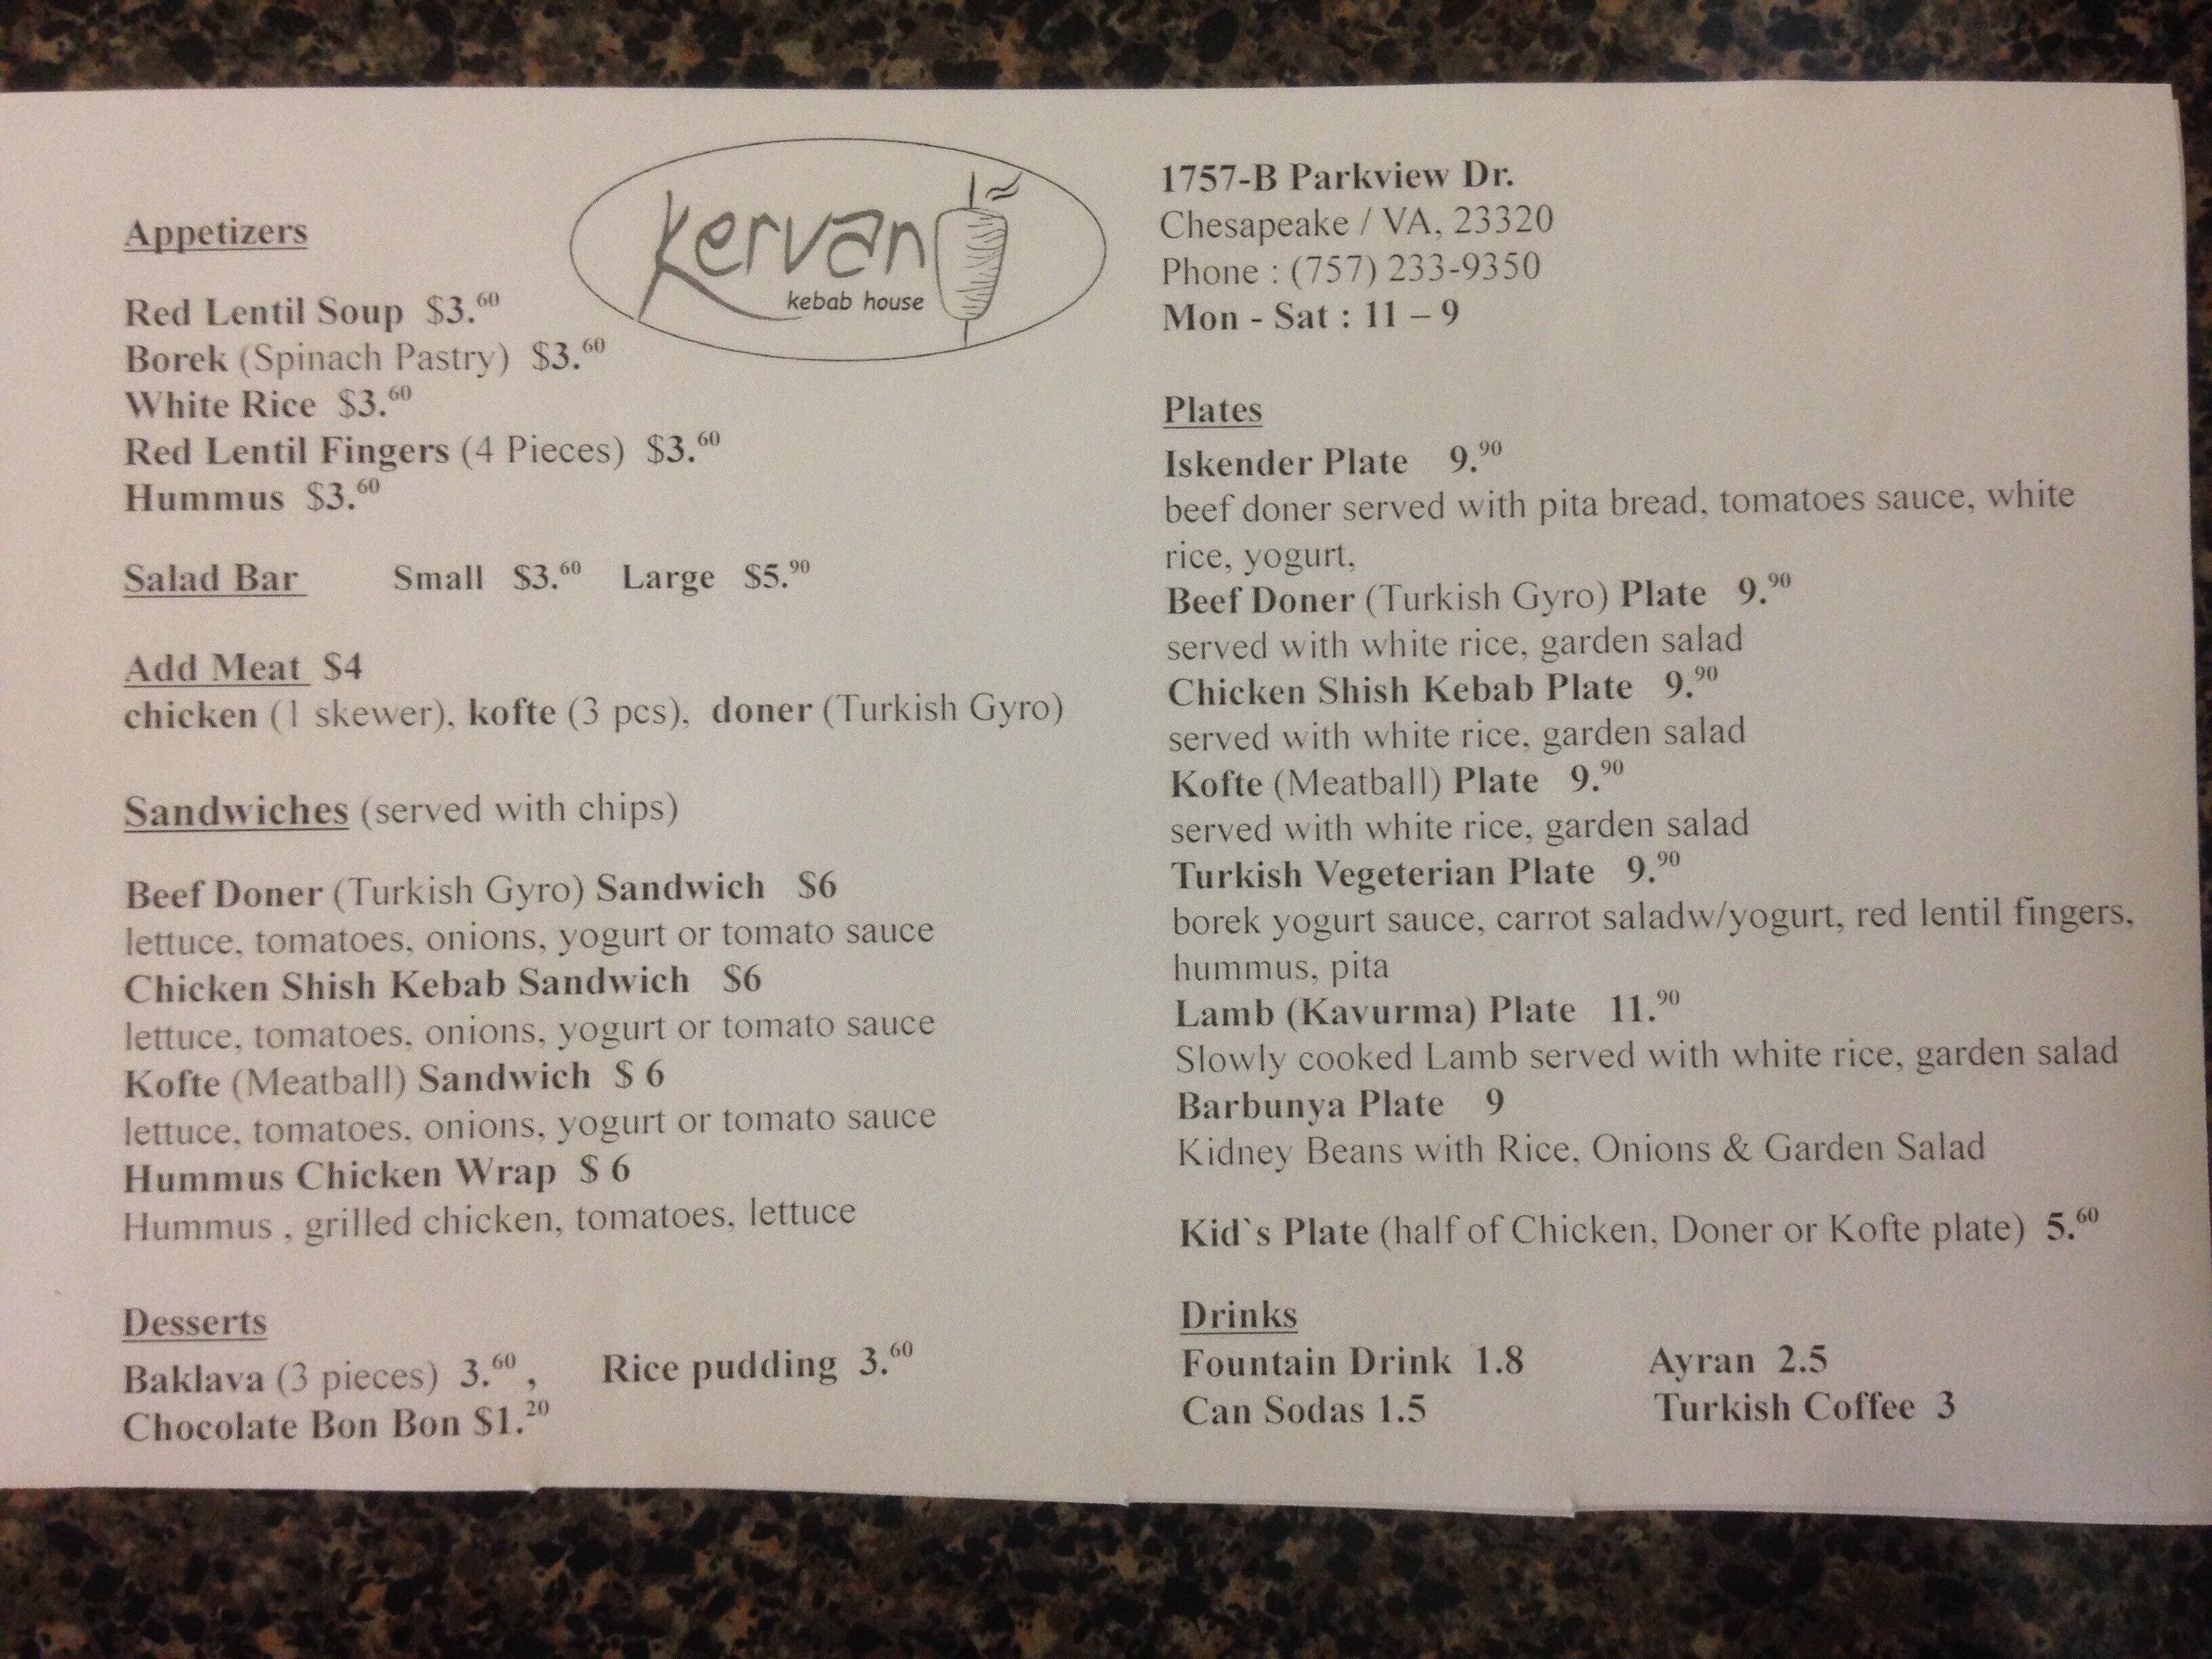 Appetizers
Red Lentil Soup $3.60
Borek (Spinach Pastry) $3.60
White Rice $3.60
Red Lentil Fingers (4 Pieces) $3.60
Hummus $3.60
Salad Bar Small $3.60 Large $5.90
Add Meat $4
chicken (1 skewer), kofte (3 pcs), doner (Turkish Gyro)
Sandwiches (served with chips)
Beef Doner (Turkish Gyro) Sandwich $6
lettuce, tomatoes, onions, yogurt or tomato sauce
Chicken Shish Kebab Sandwich $6
lettuce, tomatoes, onions, yogurt or tomato sauce
Kofte (Meatball) Sandwich $ 6
lettuce, tomatoes, onions, yogurt or tomato sauce
Hummus Chicken Wrap $ 6
Hummus , grilled chicken, tomatoes, lettuce
Desserts
Baklava (3 pieces) 3.60 , Rice pudding 3.60
Chocolate Bon Bon $1.20
kervan
kebab house
1757-B Parkview Dr.
Chesapeake / VA, 23320
Phone : (757) 233-9350
Mon - Sat : 11 – 9
Plates
Iskender Plate 9.90
beef doner served with pita bread, tomatoes sauce, white
rice, yogurt,
Beef Doner (Turkish Gyro) Plate 9.90
served with white rice, garden salad
Chicken Shish Kebab Plate 9.90
served with white rice, garden salad
Kofte (Meatball) Plate 9.90
served with white rice, garden salad
Turkish Vegeterian Plate 9.90
borek yogurt sauce, carrot saladw/yogurt, red lentil fingers,
hummus, pita
Lamb (Kavurma) Plate 11.90
Slowly cooked Lamb served with white rice, garden salad
Barbunya Plate 9
Kidney Beans with Rice, Onions & Garden Salad
Kid`s Plate (half of Chicken, Doner or Kofte plate) 5.60
Drinks
Fountain Drink 1.8 Ayran 2.5
Can Sodas 1.5 Turkish Coffee 3